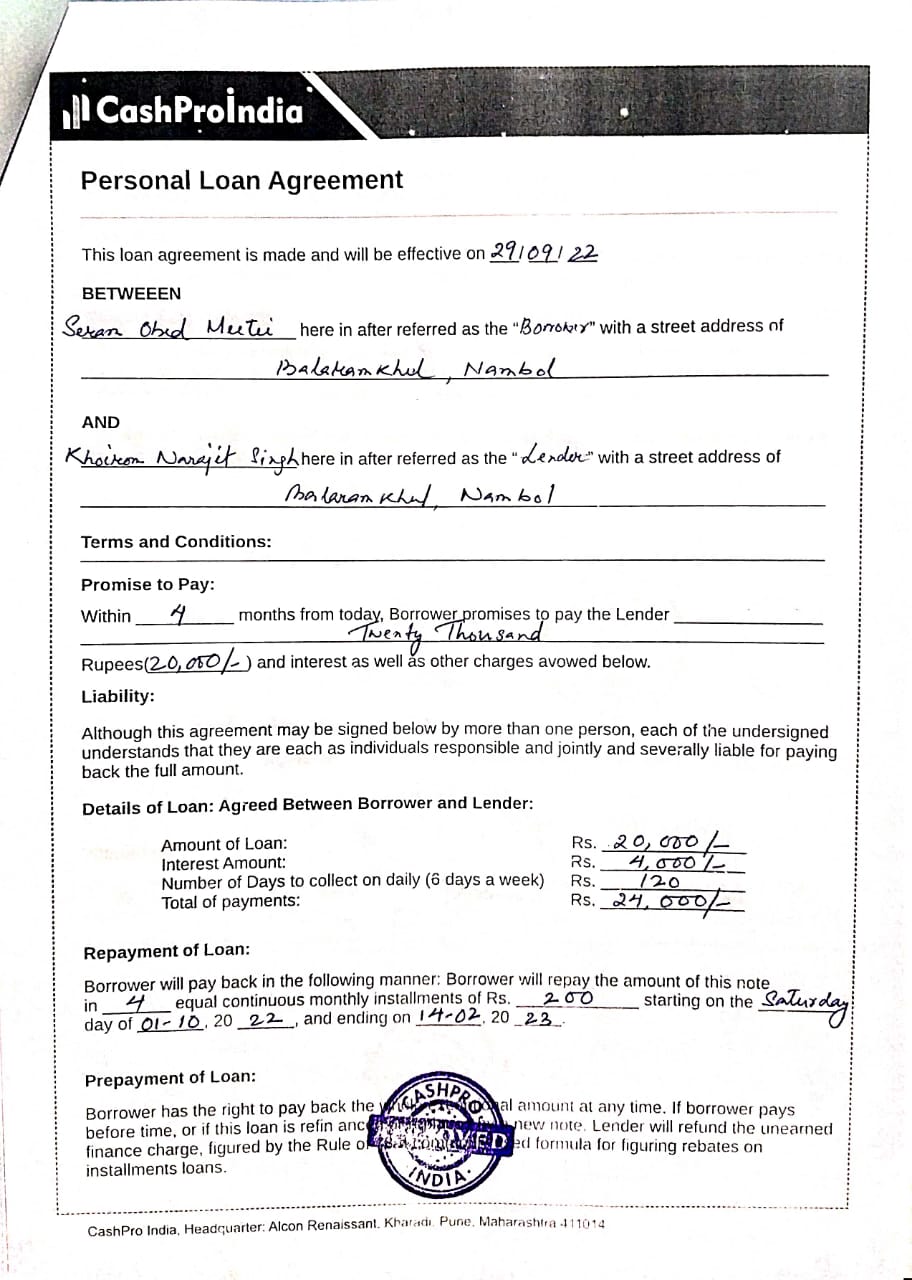 CashProIndia
Personal Loan Agreement
This loan agreement is made and will be effective on 29/09/22
BETWEEEN
Seran Obed Meitei here in after referred as the "Borrower" with a street address of
Balaramkhul, Nambol
AND
Khoirom Narajit Singh here in after referred as the "Lender" with a street address of
Balaramkhul, Nambol
Terms and Conditions:
Promise to Pay:
Within 4 months from today, Borrower promises to pay the Lender
Twenty Thousand
Rupees(20,000/-) and interest as well as other charges avowed below.
Liability:
Although this agreement may be signed below by more than one person, each of the undersigned
understands that they are each as individuals responsible and jointly and severally liable for paying
back the full amount.
Details of Loan: Agreed Between Borrower and Lender:
Amount of Loan: Rs. 20,000/-
Interest Amount: Rs. 4,000/-
Number of Days to collect on daily (6 days a week) Rs. 120
Total of payments: Rs. 24,000/-
Repayment of Loan:
Borrower will pay back in the following manner: Borrower will repay the amount of this note
in 4 equal continuous monthly installments of Rs. 200 starting on the Saturday
day of 01-10, 20 22, and ending on 14-02, 20 23.
Prepayment of Loan:
Borrower has the right to pay back the amount at any time. If borrower pays
before time, or if this loan is refin new note. Lender will refund the unearned
finance charge, figured by the Rule of formula for figuring rebates on
installments loans.
CASHPRO
INDIA
CashPro India, Headquarter: Alcon Renaissant, Kharadi, Pune, Maharashtra 411014